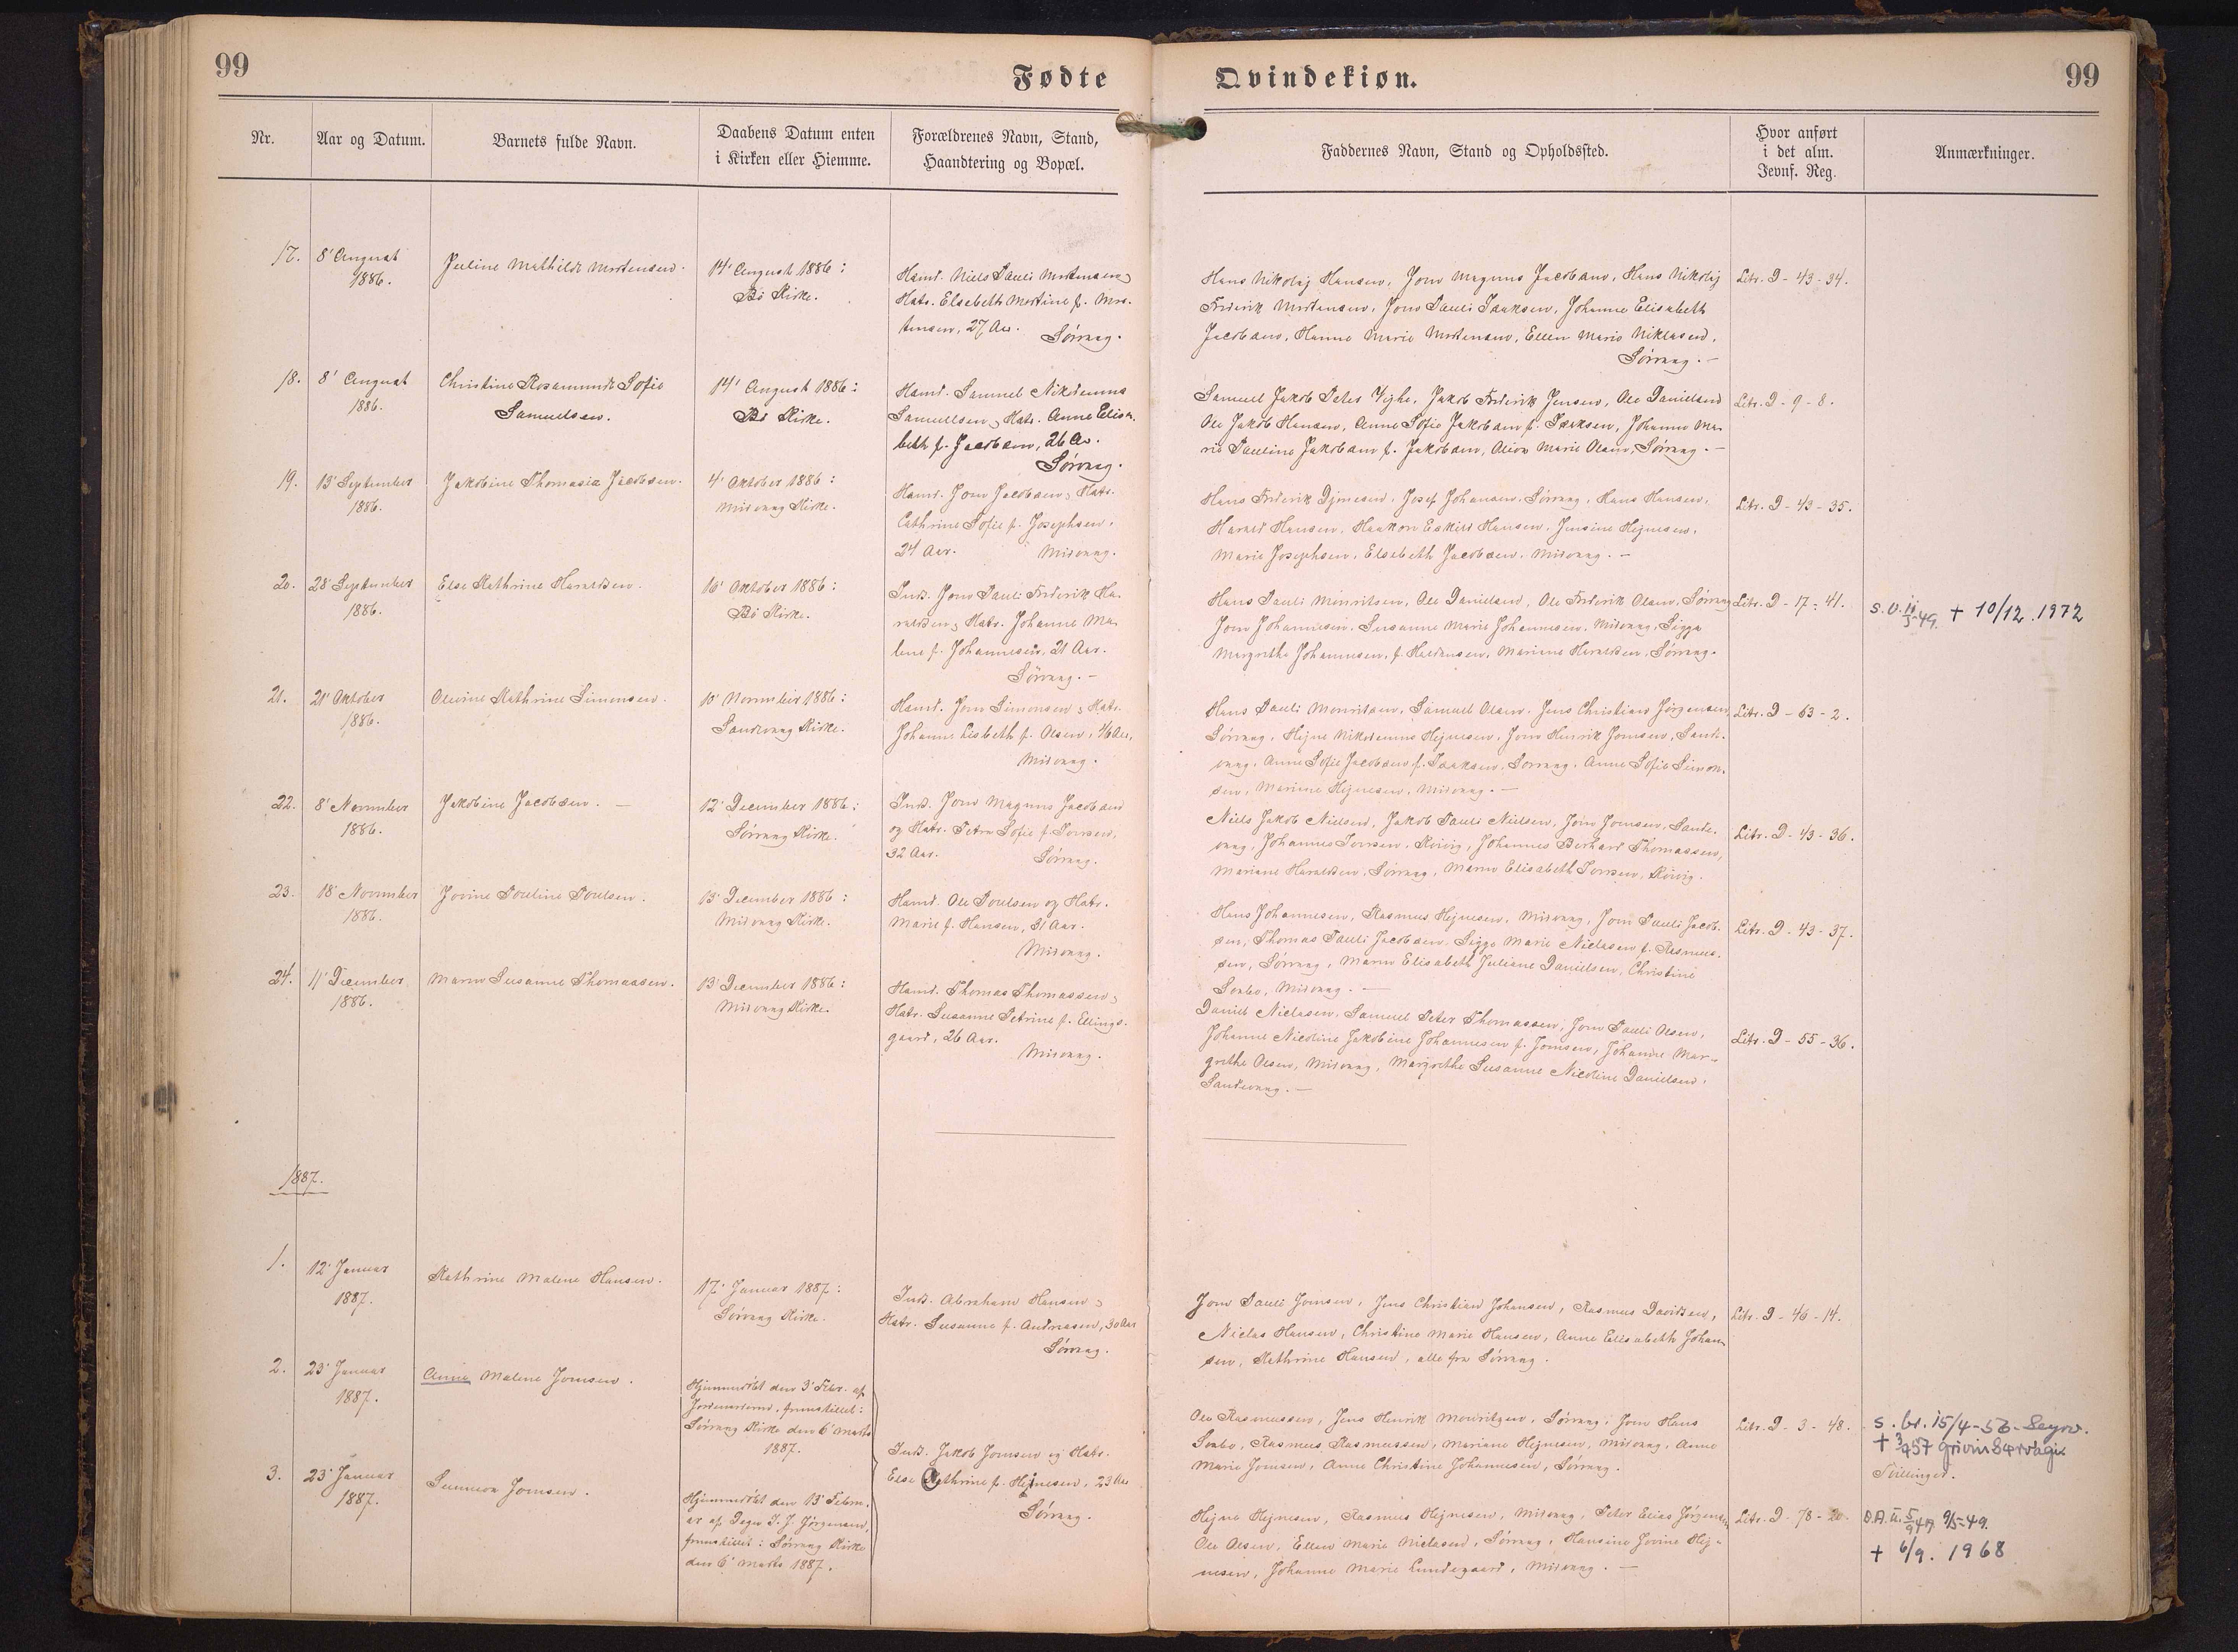 99
Fødte
Qvindekiøn.
99
Nr.
Aar og Datum.
Barnets fulde Navn.
Daabens Datum enten
i Kirken eller Hiemme.
Forældrenes Navn, Stand,
Haandtering og Bopæl.
Faddernes Navn, Stand og Opholdssted.
Hvor anført
i det alm.
Jevnf. Reg.
Anmærkninger.
17.
8' August
1886.
Mathilde Mortensen.
14' August 1886:
Bö Kirke.
Hamd. Niels Pauli Mortensen &
Hstr. Elsebeth Mortine f. Mor-
tensen, 27 Aar.
Sörvaag.
Hans Nikolaj Hansen, Jom Magnus Jacobsen, Hans Nikolaj
Frederik Mortensen, Jom Pauli Isaksen, Johanne Elisabeth
Jacobsen, Hanne Marie Mortensen, Ellen Marie Niklasen,
Sörvaag. -
Litr. D - 43 - 34.
18.
8' August
1886.
Christine Rosamunde Sofie
Samuelsen.
14' August 1886:
Bö Kirke.
Hamd. Samuel Nikodemus
Samuelsen & Hstr. Anne Elisa-
beth f. Jacobsen, 26 Aar.
Sörvaag.
Samuel Jakob Peter Vighe, Jakob Frederik Jensen, Ole Danielsen
Ole Jakob Hansen, Anne Sofie Jakobsen f. Isaksen, Johanne Ma-
rie Pauline Jakobsen f. Jakobsen, Marie Olsen, Sörvaag. -
Litr. D - 9 - 8.
19.
13' September
1886.
Jakobine Thomasia Jacobsen.
4' Oktober 1886:
Midvaag Kirke.
Hamd. Jom Jacobsen & Hstr.
Cathrine Sofie f. Josephsen,
24 Aar. Midvaag.
Hans Frederik Josef Johansen, Sörvaag, Hans Hansen,
Harald Hansen, Haakon Eskild Hansen, Jensine Hejnesen,
Marie Josephsen, Elsebeth Jacobsen, Midvaag. -
Litr. D - 43 - 35.
20.
28' September
1886.
Else Kathrine Haraldsen.
16' Oktober 1886:
Bö Kirke.
Inds. Jom Pauli Frederik Ha-
raldsen & Hstr. Johanne Ma-
lene f. Johannesen, 21 Aar.
Sörvaag. -
Hans Pauli Mouritsen, Ole Danielsen, Ole Frederik Olsen, Sörvaag
Jom Johannesen, Susanne Marie Johannesen, Midvaag, Sigga
Margrethe Johannesen, f. Mariane Haraldsen, Sörvaag.
Litr. D - 17 - 41.
+ 10/12. 1972
21.
21' Oktober
1886.
Olevine Kathrine Simonsen.
10' November 1886:
Sandevaag Kirke.
Hamd. Jom Simonsen & Hstr.
Johanne Lisbeth f. Olsen, 46 Aar,
Midvaag.
Hans Pauli Mouritsen, Samuel Olsen, Jens Christian Jörgensen,
Sörvaag, Hejne Nikodemus Hejnesen, Jom Henrik Jomsen, Sande-
vaag, Anne Sofie Jacobsen f. Isaksen, Sörvaag, Anne Sofie Simon-
sen, Mariane Hejnesen, Midvaag. -
Litr. D - 63 - 2.
22.
8' November
1886.
Jakobine Jacobsen. -
12' December 1886:
Sörvaag Kirke.
Inds. Jom Magnus Jacobsen
og Hstr. Petra Sofie f.
32 Aar. Sörvaag.
Niels Jakob Nielsen, Jakob Pauli Nielsen, Jom Jomsen, Sande-
vaag, Johannes Kvivig, Johannes Berhard Thomassen,
Mariane Haraldsen, Sörvaag, Maren Elisabeth Kvivig.
Litr. D - 43 - 36.
23.
18' November
1886.
Jovine Pouline Poulsen.
13' December 1886:
Midvaag Kirke.
Hamd. Ole Poulsen og Hstr.
Marie f. Hansen, 31 Aar.
Midvaag.
Hans Johannesen, Rasmus Hejnesen, Midvaag, Jom Pauli Jacob-
sen, Thomas Pauli Jacobsen, Sigga Marie Niclasen f. Rasmus-
sen, Sörvaag, Maren Elisabeth Juliane Danielsen, Christine
Sonbo, Midvaag. -
Litr. D - 43 - 37.
24.
11' December
1886.
Maren Susanne Thomassen.
13' December 1886:
Midvaag Kirke.
Hamd. Thomas Thomassen &
Hstr. Susanne Petrine f. Ellings-
gaard, 26 Aar.
Midvaag.
Daniel Niclasen, Samuel Peter Thomassen, Jom Pauli Olsen,
Johanne Nicoline Jakobine Johannesen f. Jomsen, Johanne Mar-
grethe Olsen, Midvaag, Margrethe Susanne Nicoline Danielsen,
Sandevaag. -
Litr. D - 55 - 36.
1887.
1.
12' Januar
1887.
Kathrine Malene Hansen.
17' Januar 1887:
Sörvaag Kirke.
Inds. Abraham Hansen &
Hstr. Susanne f. Andreasen, 30 Aar
Sörvaag.
Jom Pauli Jomsen, Jens Christian Johansen, Rasmus Davidsen,
Niclas Hansen, Christine Marie Hansen, Anne Elisabeth Johan-
sen, Kathrine Hansen, alle fra Sörvaag.
Litr. D - 46 - 14.
2.
23' Januar
1887.
Anna Malene Jomsen.
Hjemmedöbt den 3' Febr. af
Jordemoderen, fremstillet:
Sörvaag Kirke den 6' Marts
1887.
Inds. Jakob Jomsen og Hstr.
Else Cathrine f. Hejnesen, 23 Aar
Sörvaag.
Ole Rasmussen, Jens Henrik Mouritzen, Sörvaag, Jom Hans
Sonbo, Rasmus Rasmussen, Mariane Hejnesen, Midvaag, Anne
Marie Jomsen, Anne Christine Johannesen, Sörvaag.
Litr. D - 3 - 48.
S. br. 15/4-56
Tvillinger.
3.
23' Januar
1887.
Sunneva Jomsen.
Hjemmedöbt den 13' Febru-
ar af Degn J. J. Jörgensen,
fremstillet: Sörvaag Kirke
den 6' Marts 1887.
Hejne Hejnesen, Rasmus Hejnesen, Midvaag, Peter Elias Jörgensen
Ole Olsen, Ellen Marie Niclasen, Sörvaag, Hansine Jovine Hej-
nesen, Johanne Marie Lundegaard, Midvaag. -
Litr. D - 78 - 20.
+ 6/9. 1968